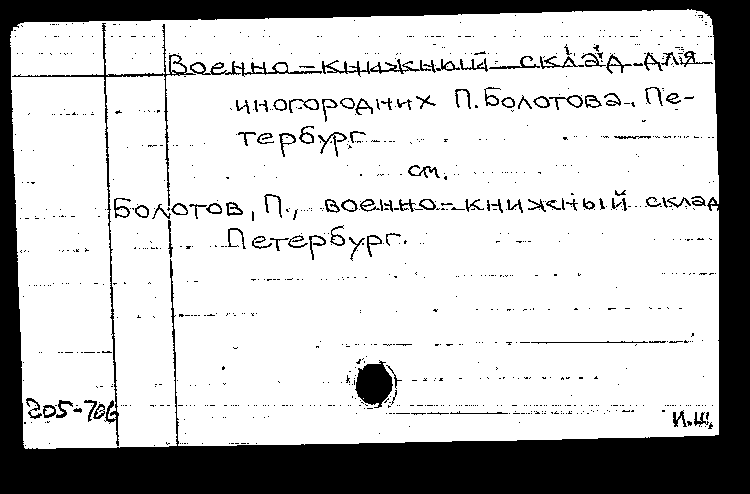 Военно-книжный склад для
иногородних П. Болотова. Пе-
тербург
см.
Болотов, П., военно-книжный склад
Петербург.
205-706
И.Щ.